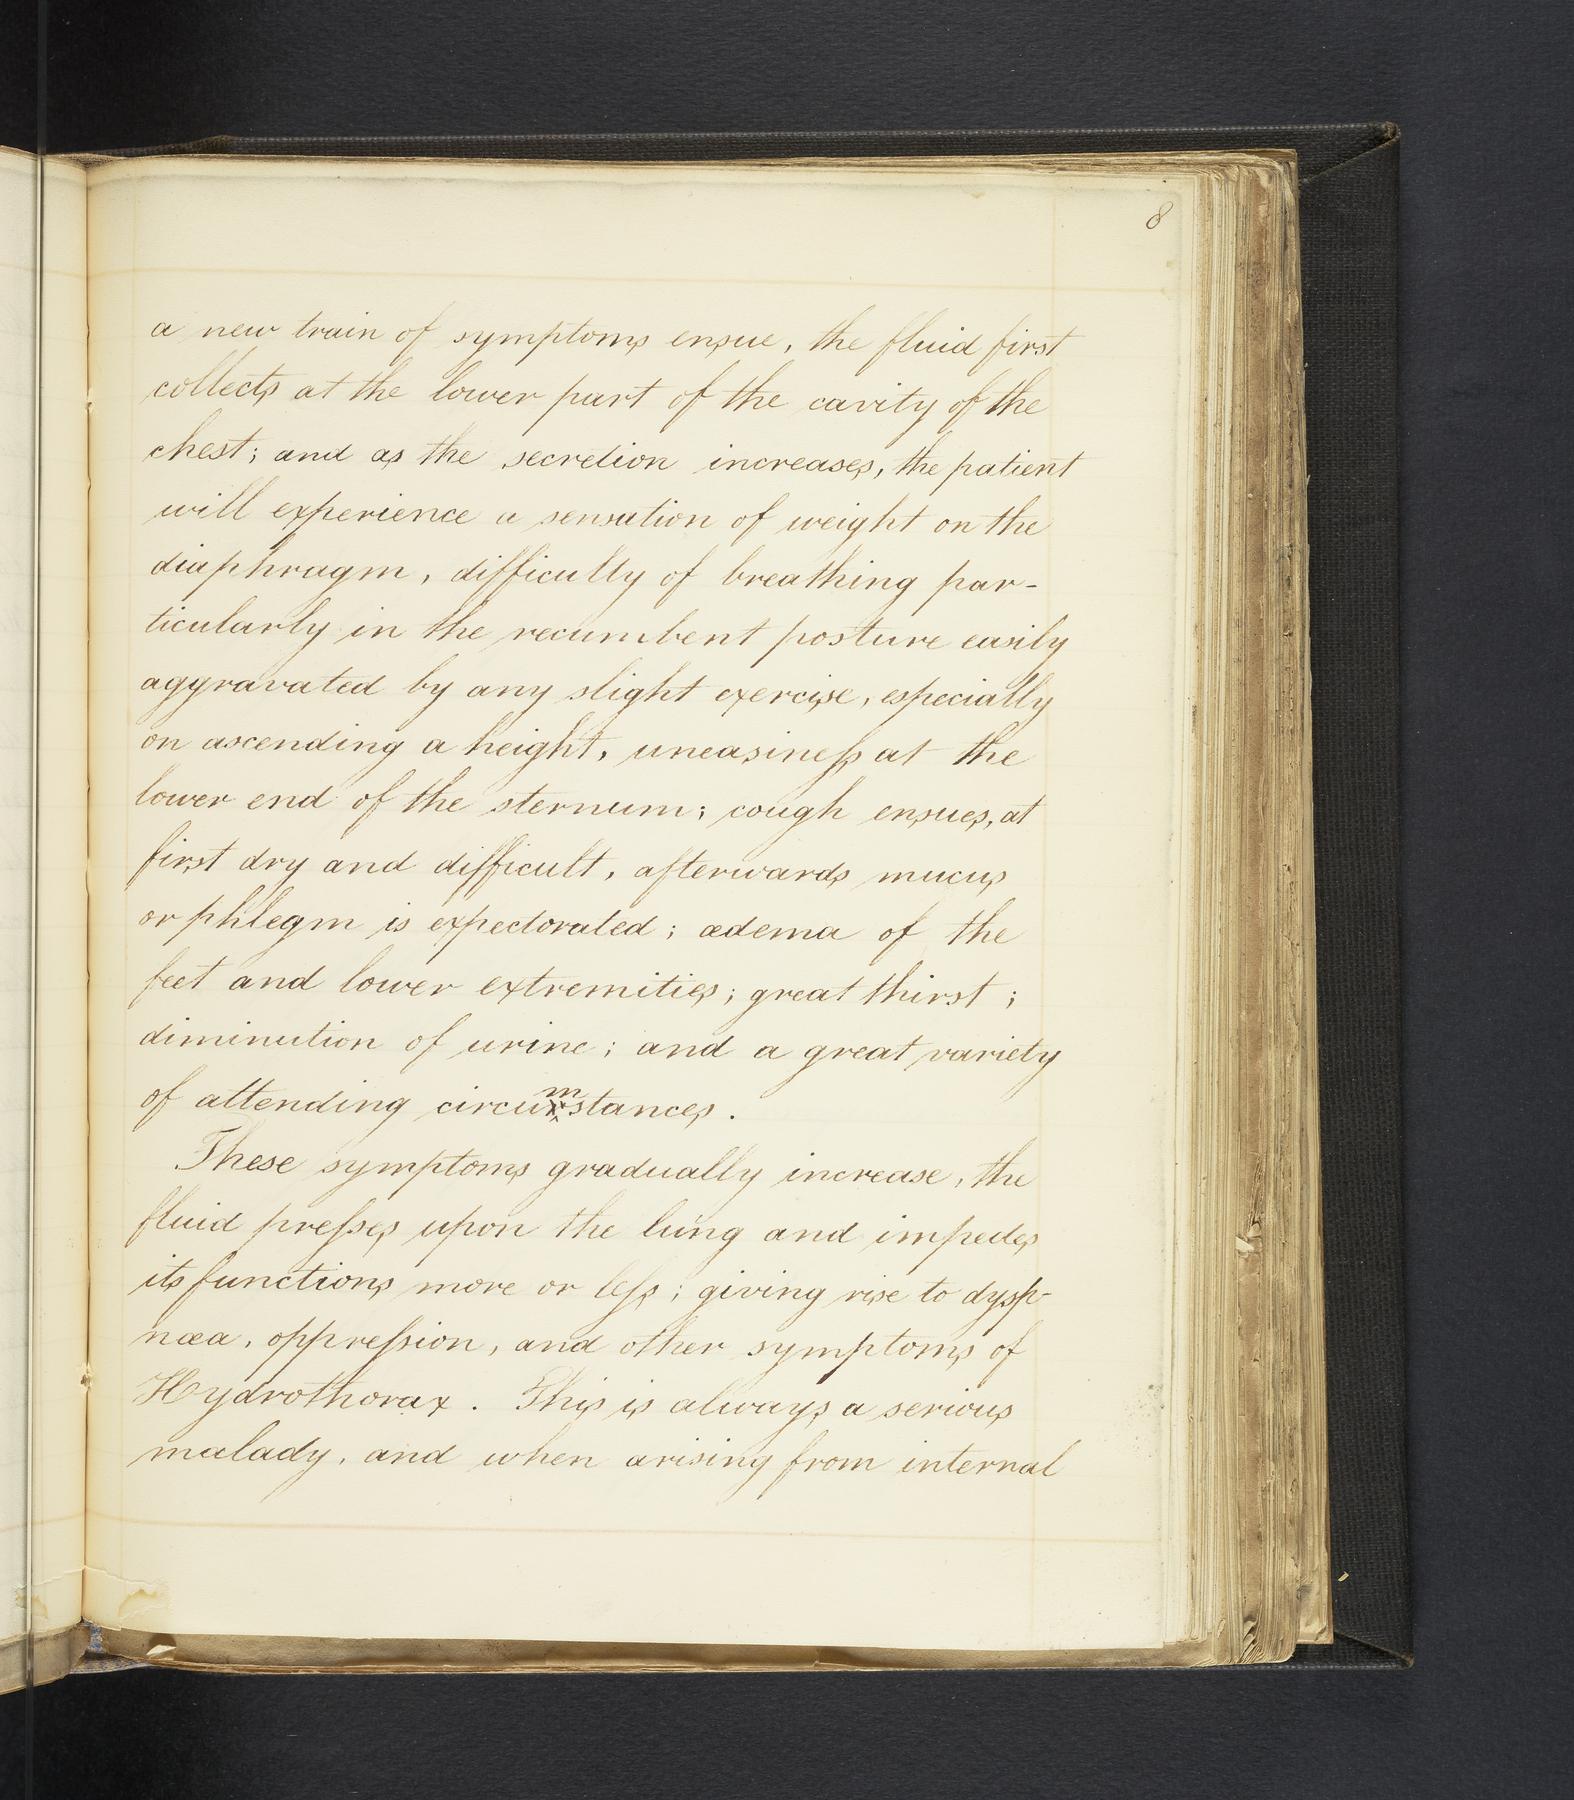 8
a new train of symptoms ensue, the fluid first
collects at the lower part of the cavity of the
chest; and as the secretion increases, the patient
will experience a sensation of weight on the
diaphragm, difficulty of breathing par-
ticularly in the recumbent posture easily
aggravated by any slight exercise, especially
on ascending a height, uneasiness at the
lower end of the sternum; cough ensues, at
first dry and difficult, afterwards mucus
or phlegm is expectorated; œdema of the
feet and lower extremities; great thirst;
diminution of urine; and a great variety
of attending circumstances.
These symptoms gradually increase, the
fluid presses upon the lung and impedes
its functions more or less; giving rise to dysp-
nœa, oppression, and other symptoms of
Hydrothorax. This is always a serious
malady, and when arising from internal